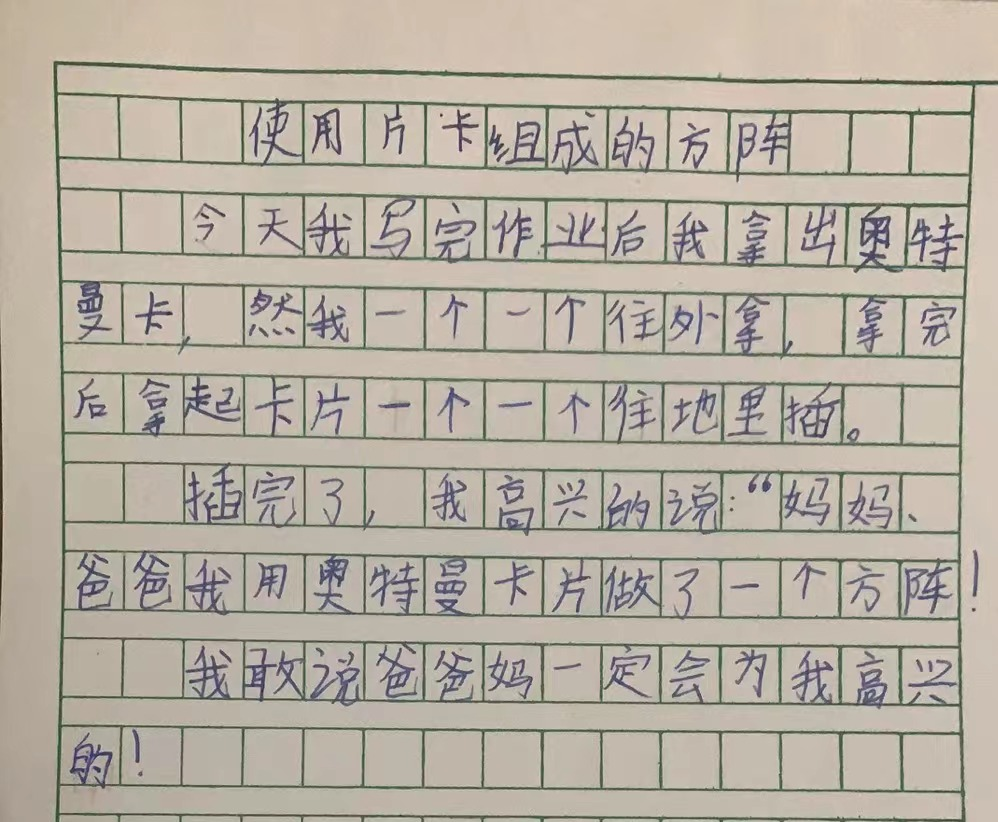 使用片卡组成的方阵
今天我写完作业后我拿出奥特
曼卡，然我一个一个往外拿，拿完
后拿起卡片一个一个往地里插。
插完了，我高兴的说：“妈妈、
爸爸我用奥特曼卡片做了一个方阵！
我敢说爸爸妈一定会为我高兴
的！